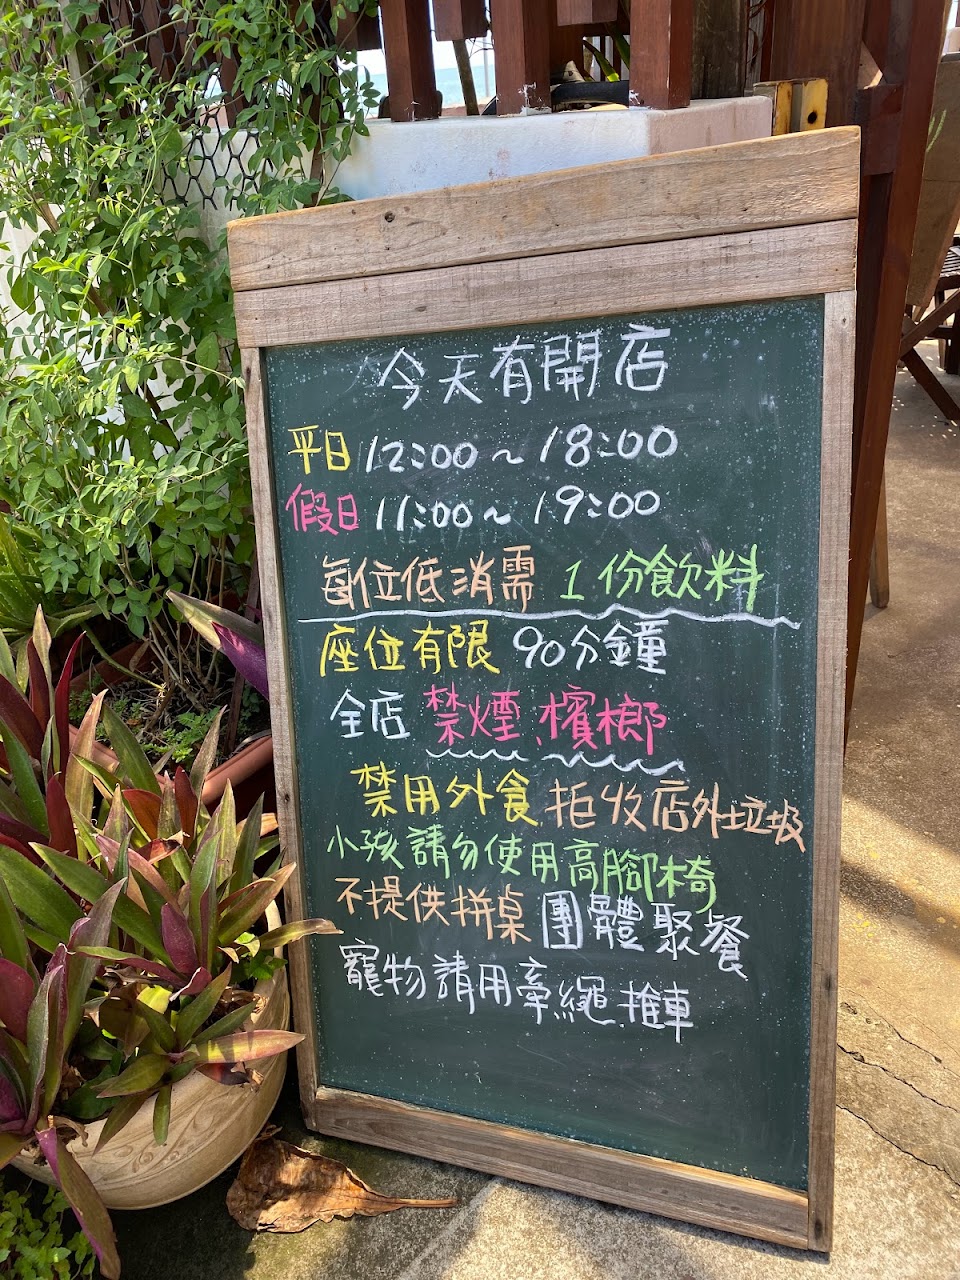 今天有開店
平日 12:00~18:00
假日 11:00~19:00
每位低消需 1份飲料
座位有限 90分鐘
全店 禁煙、檳榔
禁用外食 拒收店外垃圾
小孩請勿使用高腳椅
不提供拼桌 團體聚餐
寵物請用牽繩.推車